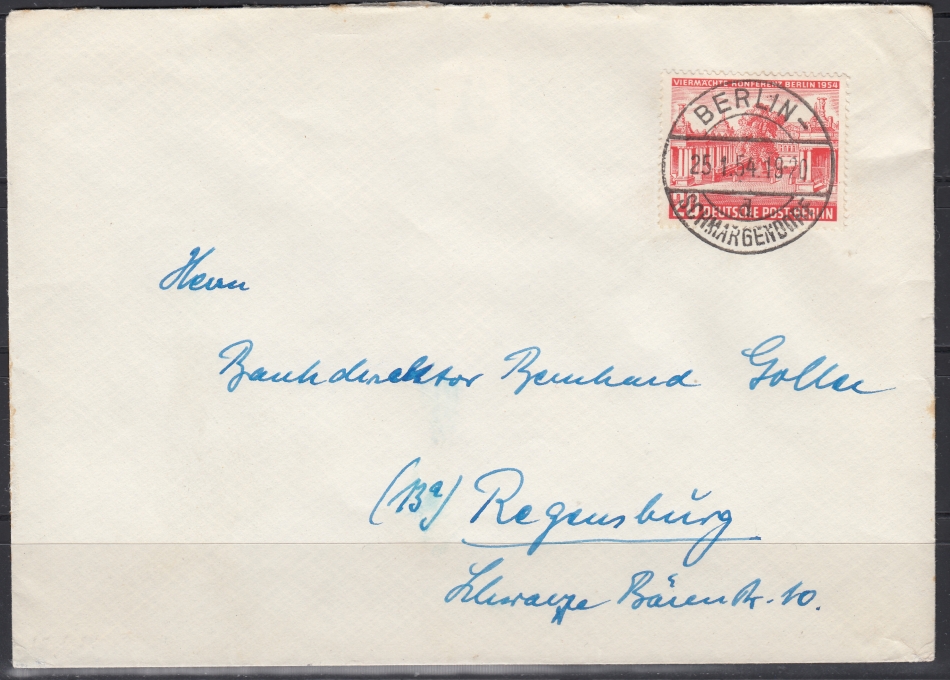 VIERMÄCHTE KONFERENZ BERLIN 1954
BERLIN-
25.1.54.19 20
DEUTSCHE POST BERLIN
SCHMARGENDORF
Herrn
Bankdirektor Bernhard Goller
(13a) Regensburg
Schwarze Bärenstr. 10.